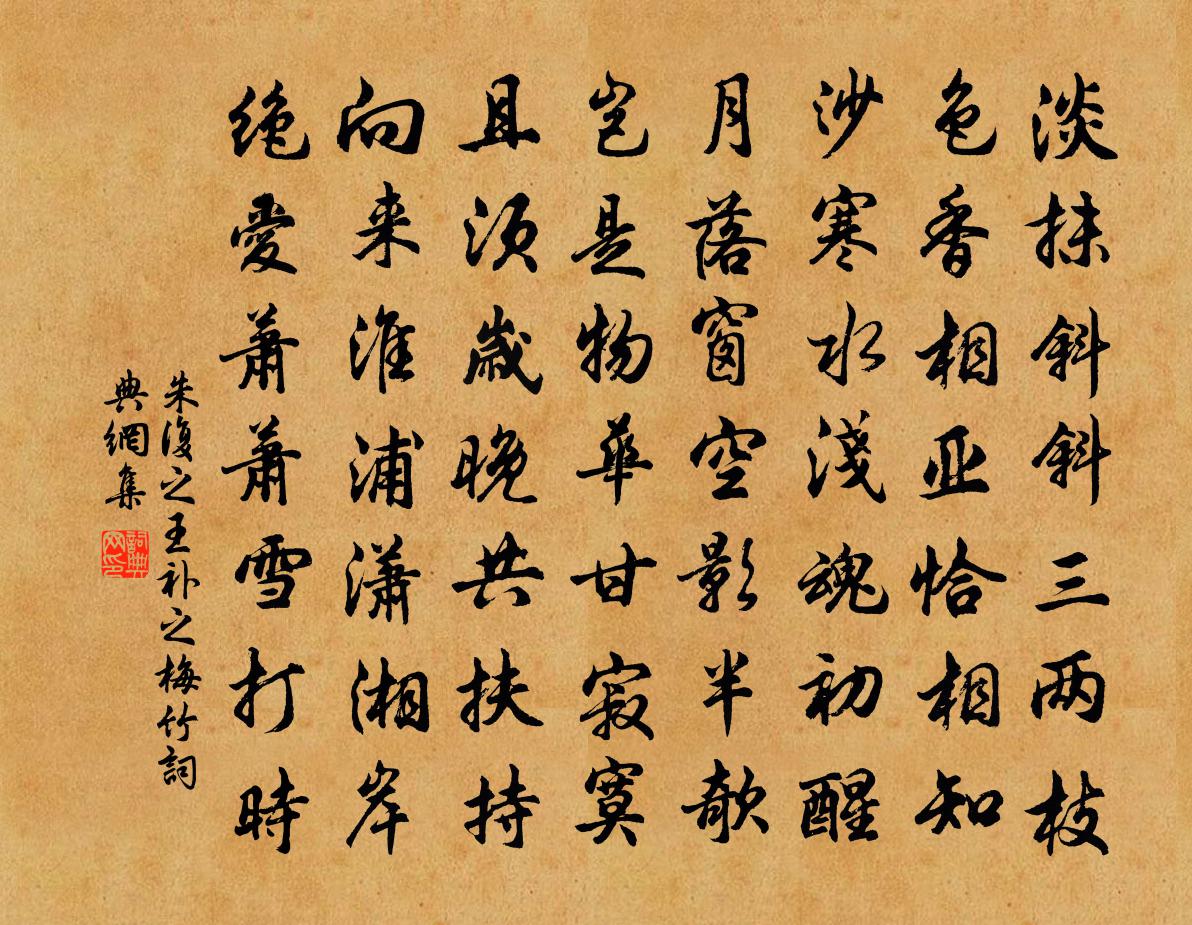 淡抹斜斜三兩枝
色香相亚恰相知
沙寒水淺魂初醒
月落窗空影半欹
岂是物華甘寂寞
且須歲晚共扶持
向来淮浦瀟湘岸
绝愛萧萧雪打時
朱復之王补之梅竹詞
典網集
詞典网印